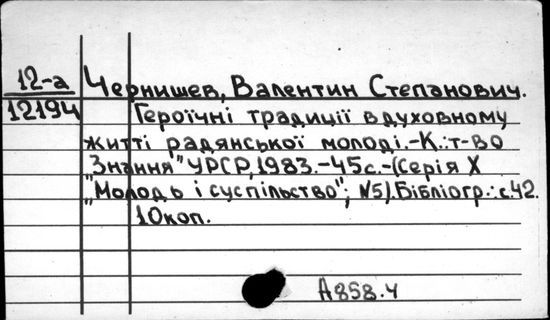 12-а Чернишев, Валентин Степанович.
12194 Героїчні традиції в духовному
житті радянської молоді.-К.:т-во
"Знання" УРСР, 1983.-45с.-(Серія X
"Молодь і суспільство"; №5). Бібліогр.: с.42.
10коп.
А858.4